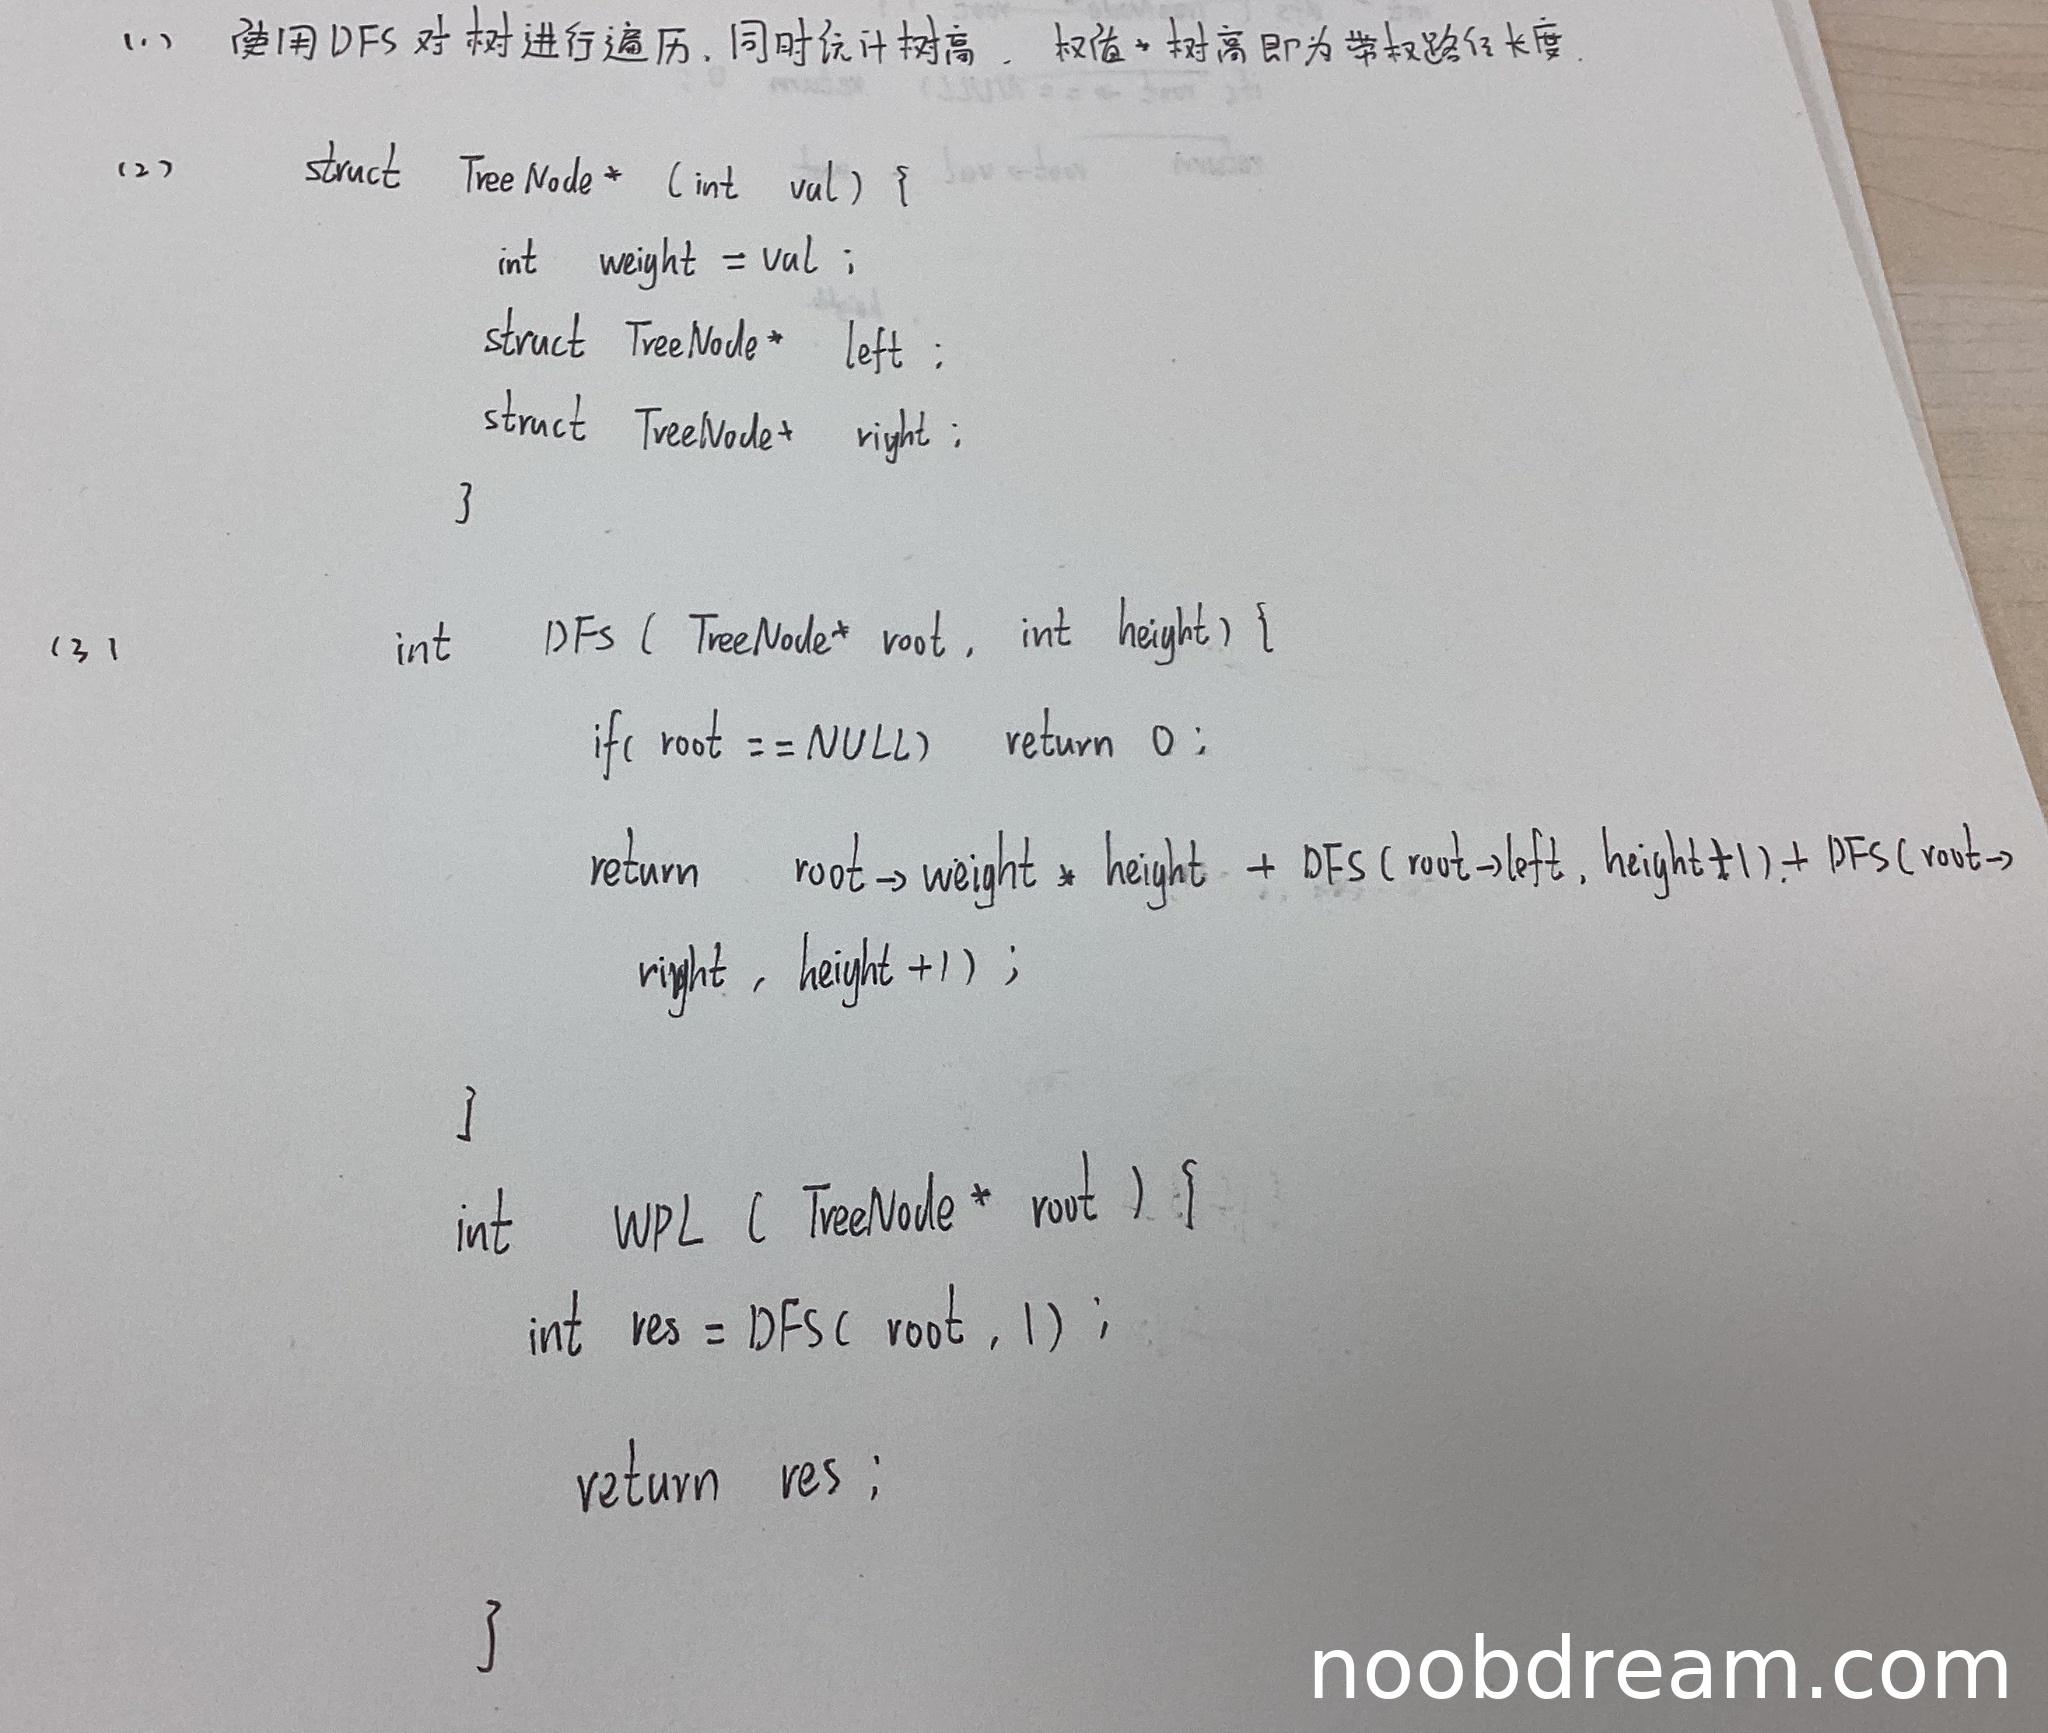 (1) 使用DFS对树进行遍历,同时统计树高. 权值*树高即为带权路径长度.
(2) struct TreeNode* (int val) {
int weight = val ;
struct TreeNode* left ;
struct TreeNode* right ;
}
(3) int DFS ( TreeNode* root, int height) {
if( root == NULL) return 0 ;
return root->weight * height + DFS(root->left, height+1) + DFS(root->
right, height+1) ;
}
int WPL ( TreeNode* root ) {
int res = DFS( root, 1) ;
return res ;
}
noobdream.com